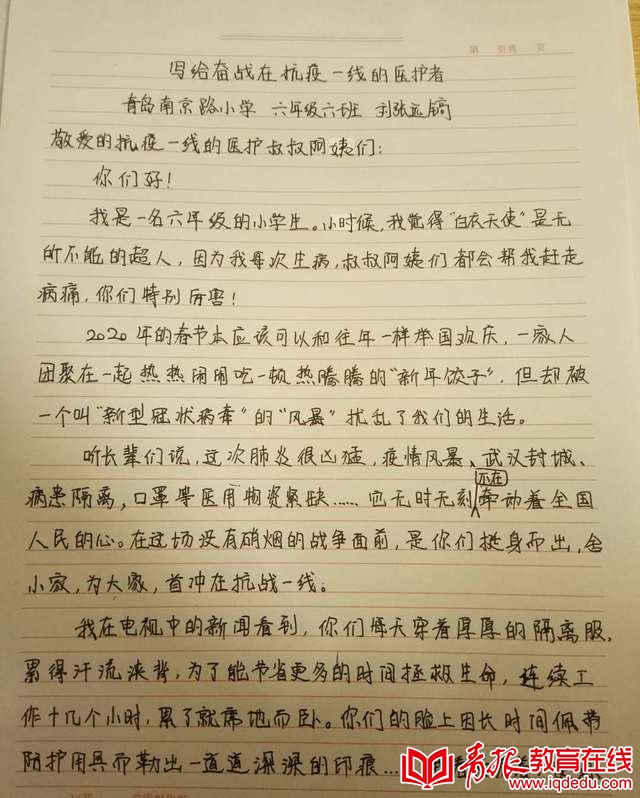 第 页 共 页
写给奋战在抗疫一线的医护者
青岛南京路小学 六年级六班 刘张远镐
敬爱的抗疫一线的医护叔叔阿姨们:
你们好!
我是一名六年级的小学生。小时候,我觉得"白衣天使"是无
所不能的超人,因为我每次生病,叔叔阿姨们都会帮我赶走
病痛,你们特别厉害!
2020年的春节本应该可以和往年一样举国欢庆,一家人
团聚在一起热热闹闹吃一顿热腾腾的"新年饺子",但却被
一个叫"新型冠状病毒"的"风暴"扰乱了我们的生活。
听长辈们说,这次肺炎很凶猛,疫情风暴、武汉封城、
病患隔离,口罩等医用物资紧缺……也无时无刻不在牵动着全国
人民的心。在这场没有硝烟的战争面前,是你们挺身而出,舍
小家,为大家,首冲在抗战一线。
我在电视中的新闻看到,你们每天穿着厚厚的隔离服,
累得汗流浃背,为了能节省更多的时间拯救生命,连续工
作十几个小时,累了就席地而卧。你们的脸上因长时间佩带
防护用具而勒出一道道深深的印痕…
青报教育在线
www.iqdedu.com